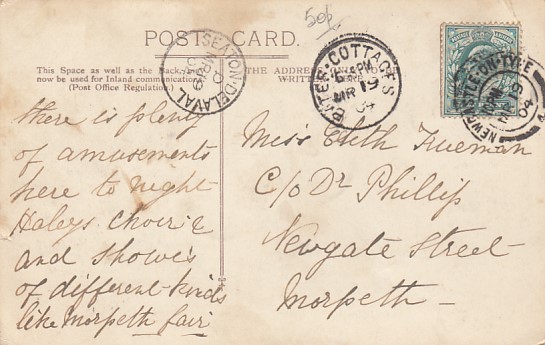 50p
POST CARD.
This Space as well as the Back, may
now be used for Inland communications.
(Post Office Regulation.)
THE ADDRESS ONLY TO BE
WRITTEN HERE.
SEATON-DELAVAL
BATES-COTTAGES
MR 19
04
NEWCASTLE-ON-TYNE
04
there is plenty
of amusements
here to night
Haleys choir &
and showes
of different kinds
like Morpeth fair
Miss Edith Trueman
C/o Dr Phillip
Newgate Street
Morpeth